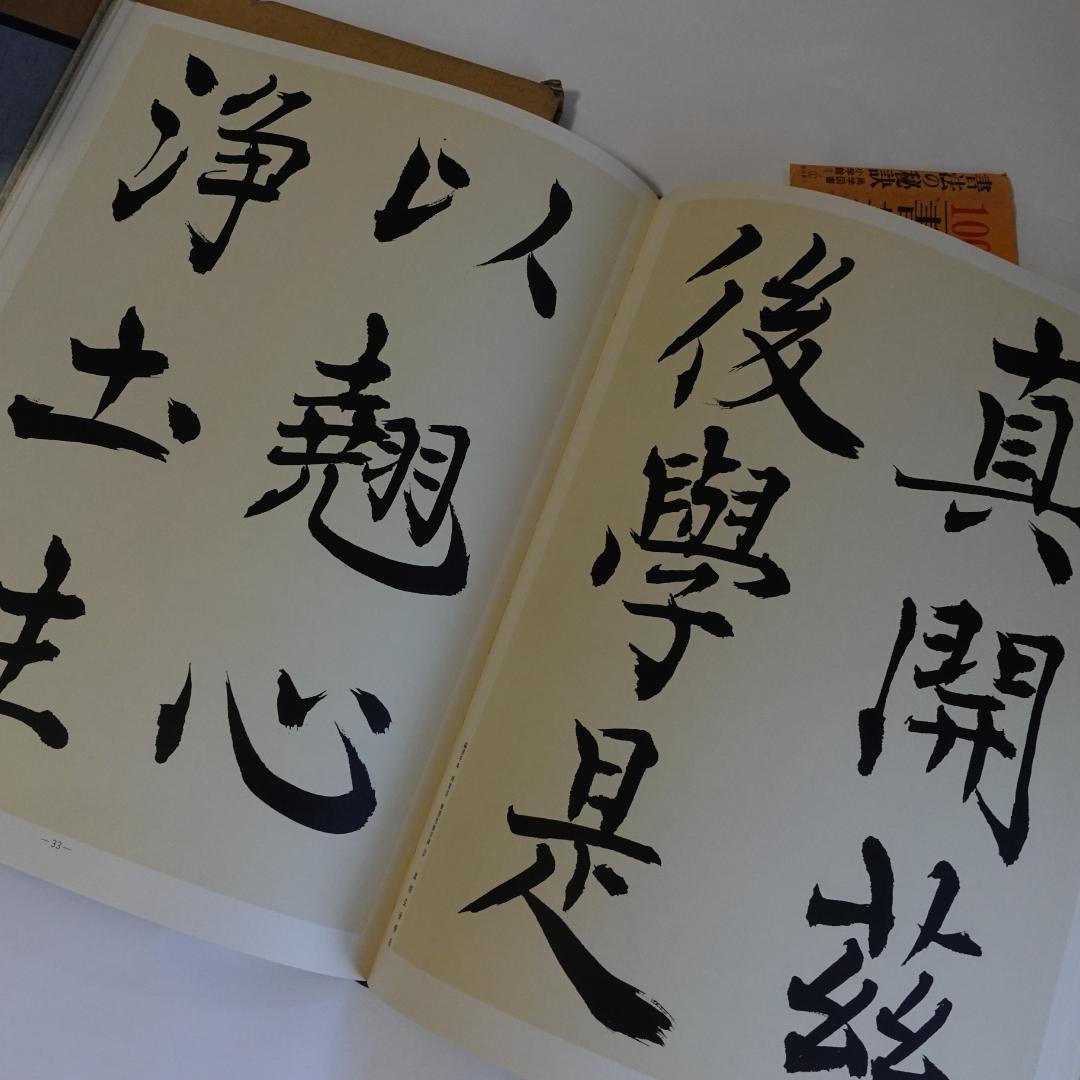 真開茲
後學是
以翹心
浄土
—33—
書法の秘訣
小学館
100